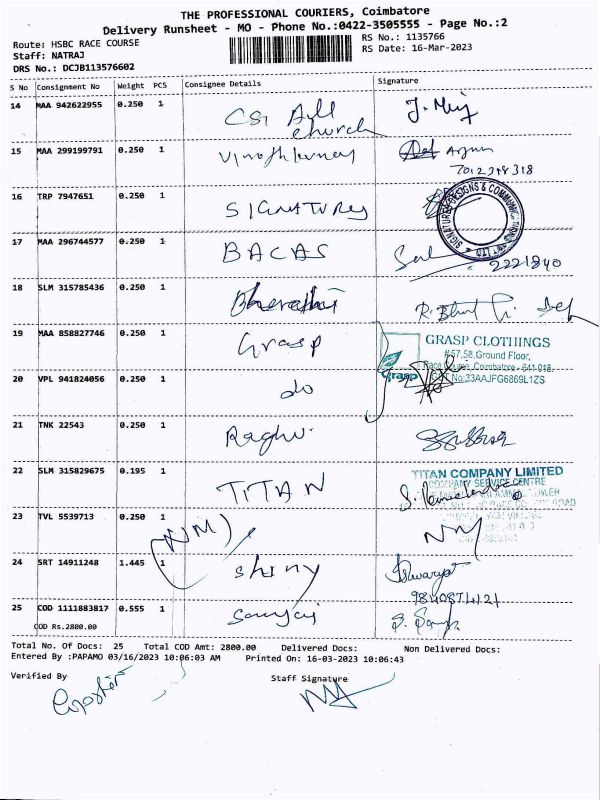 THE PROFESSIONAL COURIERS, Coimbatore
Delivery Runsheet - MO - Phone No.:0422-3505555 - Page No.:2
Route: HSBC RACE COURSE
RS No.: 1135766
Staff: NATRAJ
RS Date: 16-Mar-2023
DRS No.: DCJB113576602
S No Consignment No Weight PCS Consignee Details Signature
14 MAA 942622955 0.250 1 CSI All church
15 MAA 299199791 0.250 1 Arjun
16 TRP 7947651 0.250 1 SIGNATURES
17 MAA 296744577 0.250 1 BACAS 2221840
18 SLM 315785436 0.250 1 Bharathi
19 MAA 858827746 0.250 1 Grasp
GRASP CLOTHINGS
#57,58,Ground Floor,
Race Course, Coimbatore - 641 018.
Grasp GST No:33AAJFG6869L1ZS
20 VPL 941824056 0.250 1 do
21 TNK 22543 0.250 1 Raghu
22 SLM 315829675 0.195 1 TITAN
TITAN COMPANY LIMITED
COMPANY SERVICE CENTRE
23 TVL 5539713 0.250 1 (NM) NM
24 SRT 14911248 1.445 1 Shiny
25 COD 1111883817 0.555 1 Sanjai
COD Rs.2800.00
Total No. Of Docs: 25 Total COD Amt: 2800.00 Delivered Docs: Non Delivered Docs:
Entered By :PAPAMO 03/16/2023 10:06:03 AM Printed On: 16-03-2023 10:06:43
Verified By Staff Signature